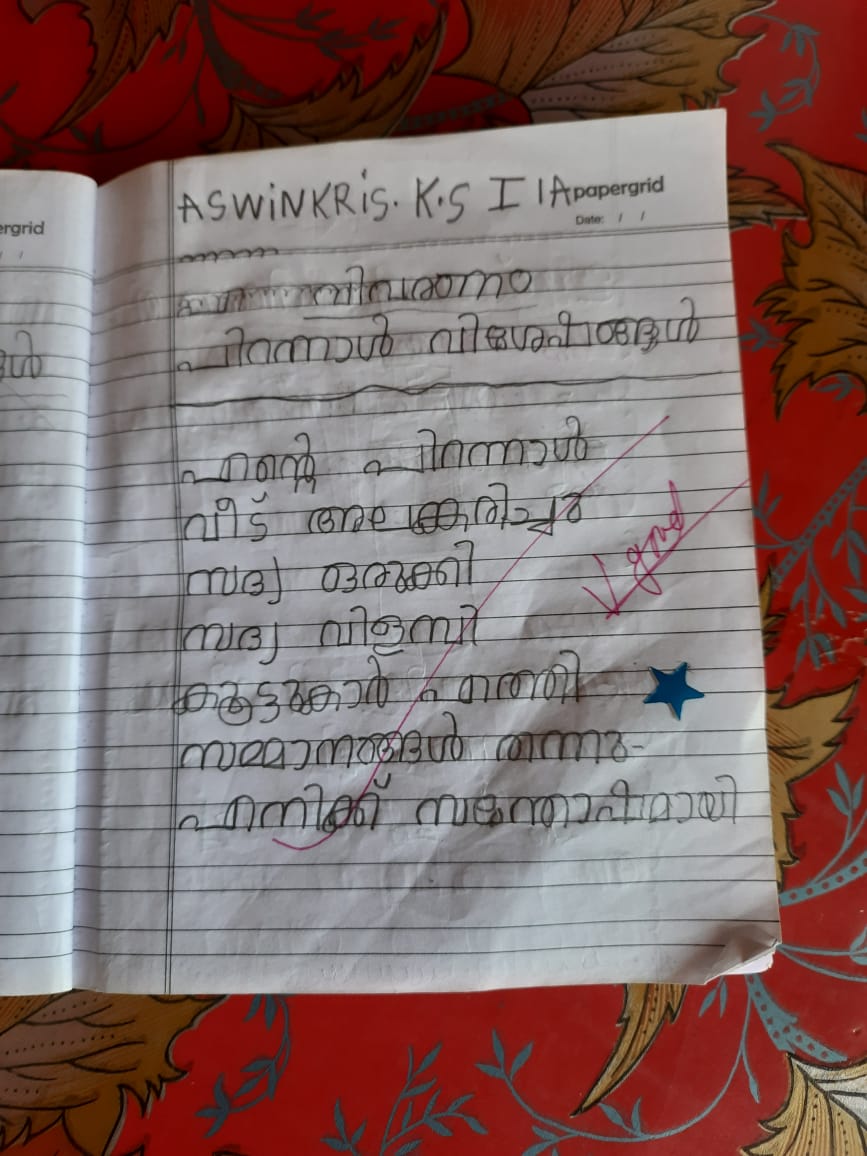 ergrid
ASWiNKRiS. K.S I IA papergrid
Date: / /
വിവരണം
പിറന്നാൾ വിശേഷങ്ങൾ
എന്റെ പിറന്നാൾ
വീട് അലങ്കരിച്ചു
സദ്യ ഒരുക്കി
സദ്യ വിളമ്പി
കൂട്ടുകാർ എത്തി
സമ്മാനങ്ങൾ തന്നു
എനിക്ക് സന്തോഷമായി
V good